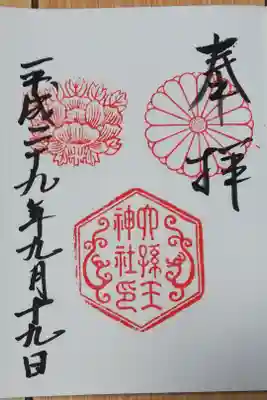 奉拝
六孫王
神社印
平成二十九年九月十九日